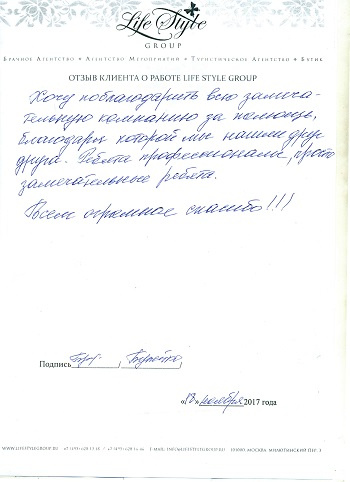 Life Style
GROUP
Брачное Агентство • Агентство Мероприятий • Туристическое Агентство • Бутик
ОТЗЫВ КЛИЕНТА О РАБОТЕ LIFE STYLE GROUP
Хочу поблагодарить всю замеча-
тельную компанию за помощь,
благодаря которой мы нашли друг
друга. Ребята профессионалы, просто
замечательные ребята.
Всем огромное спасибо!!!
Подпись / /
«18» ноября 2017 года
WWW.LIFESTYLEGROUP.RU E-MAIL: INFO@LIFESTYLEGROUP.RU 101000, МОСКВА, МИЛЮТИНСКИЙ ПЕР.